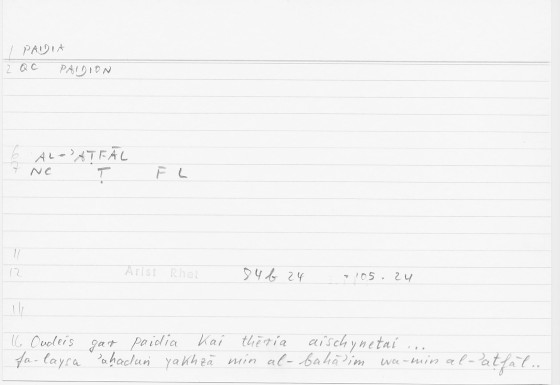 1 PAIDIA
2 QC PAIDION
6 AL-ʾAṬFĀL
7 NC Ṭ F L
11
12 Arist Rhet 84b 24 105.24
14
16 Oudeis gar paidia kai thēria aischynetai ...
fa-laysa ʾaḥadun yakhzā min al-bahāʾim wa-min al-ʾaṭfāl ..